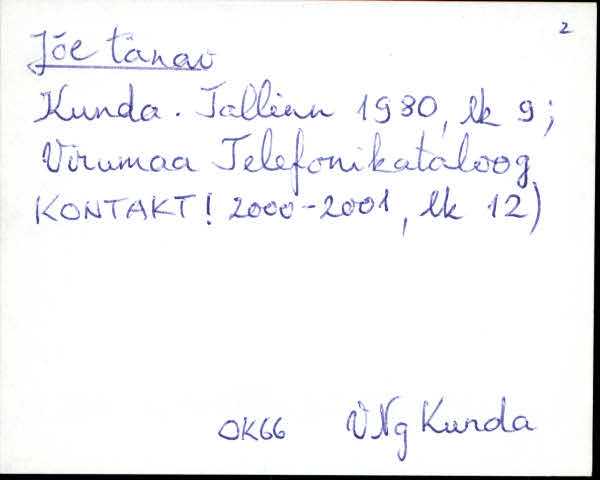 2
Jõe tänav
Kunda. Tallinn 1980, lk 9;
Virumaa Telefonikataloog
KONTAKT! 2000-2001, lk 12)
OK66 VNg Kunda